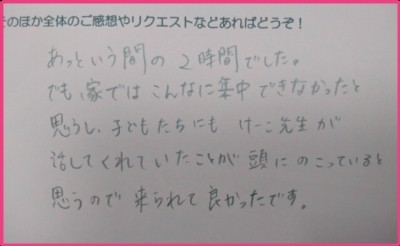 そのほか全体のご感想やリクエストなどあればどうぞ！
あっという間の2時間でした。
でも、家ではこんなに集中できなかったと
思うし、子どもたちにも けーこ先生が
話してくれていたことが頭にのこっていると
思うので来られて良かったです。